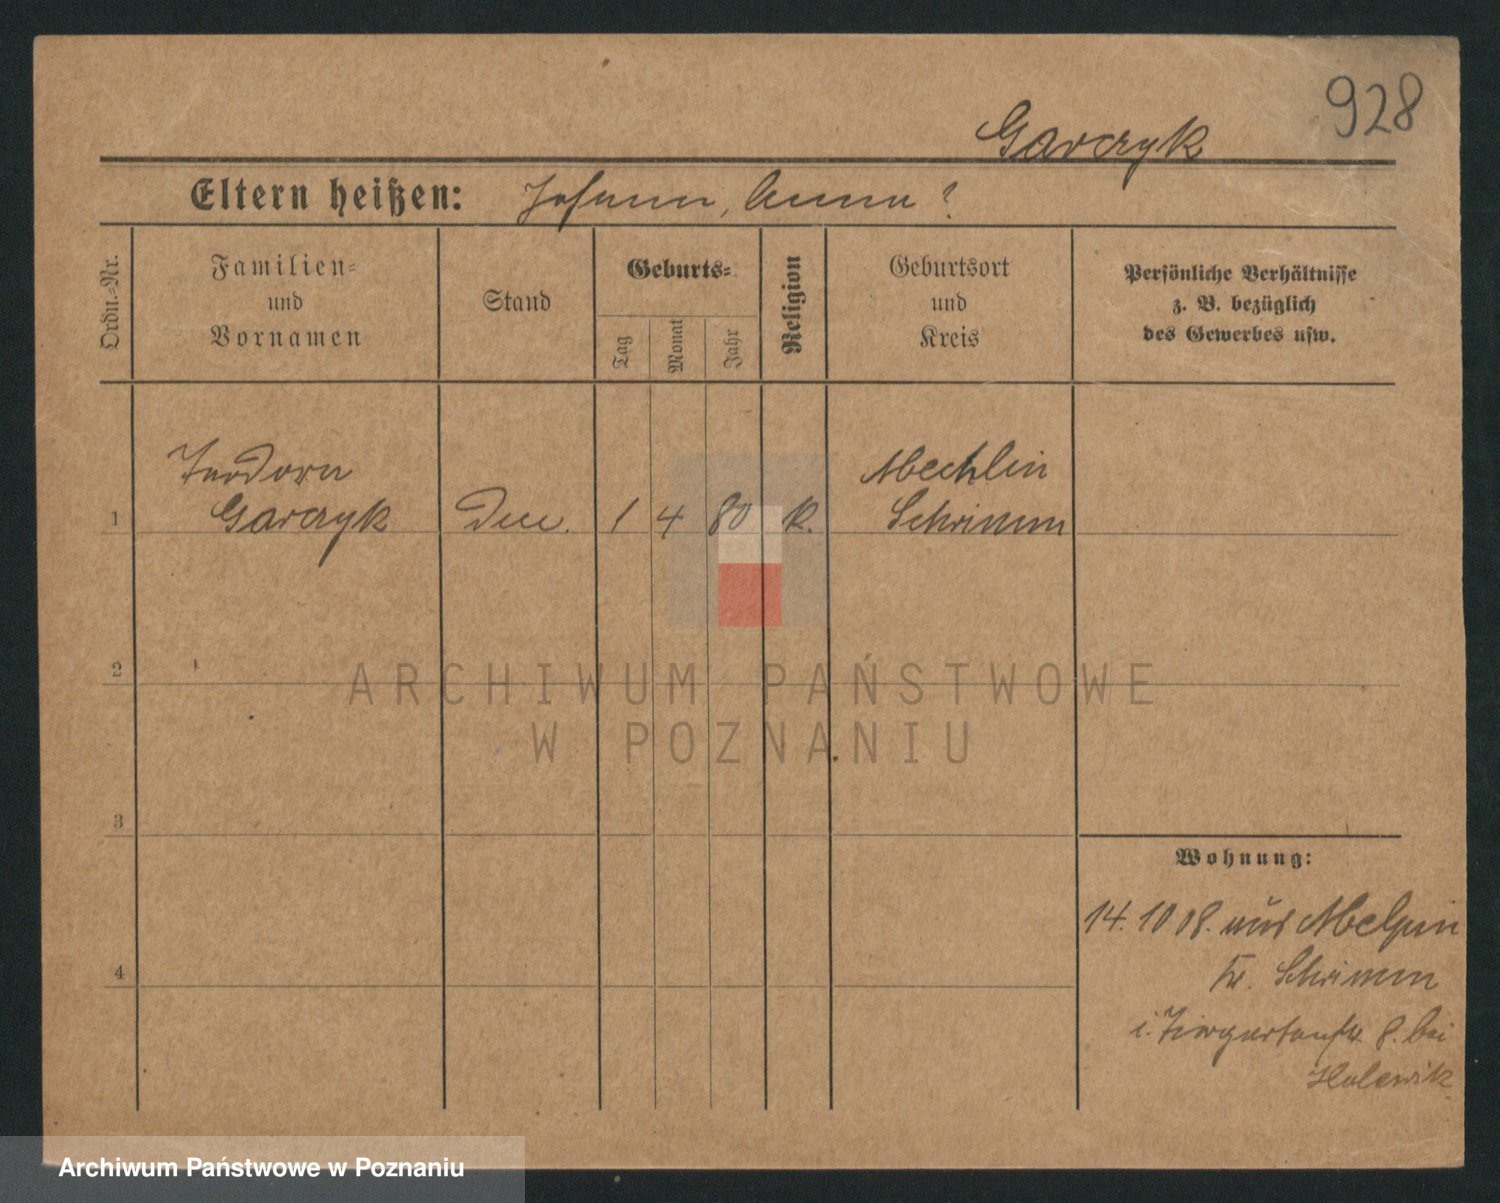 928
Garczyk
Eltern heißen: Johann, Anna?
Ordn.-Nr.
Familien-
und
Vornamen
Stand
Geburts-
Tag
Monat
Jahr
Religion
Geburtsort
und
Kreis
Persönliche Verhältnisse
z. B. bezüglich
des Gewerbes usw.
Teodora
Mechlin
1 Garczyk 1 4 80 K. Schrimm
2
3
4
Wohnung:
14. 10 08. aus
Kr. Schrimm
i. Tiergartenstr. 8. bei
ARCHIWUM PAŃSTWOWE
W POZNANIU
Archiwum Państwowe w Poznaniu